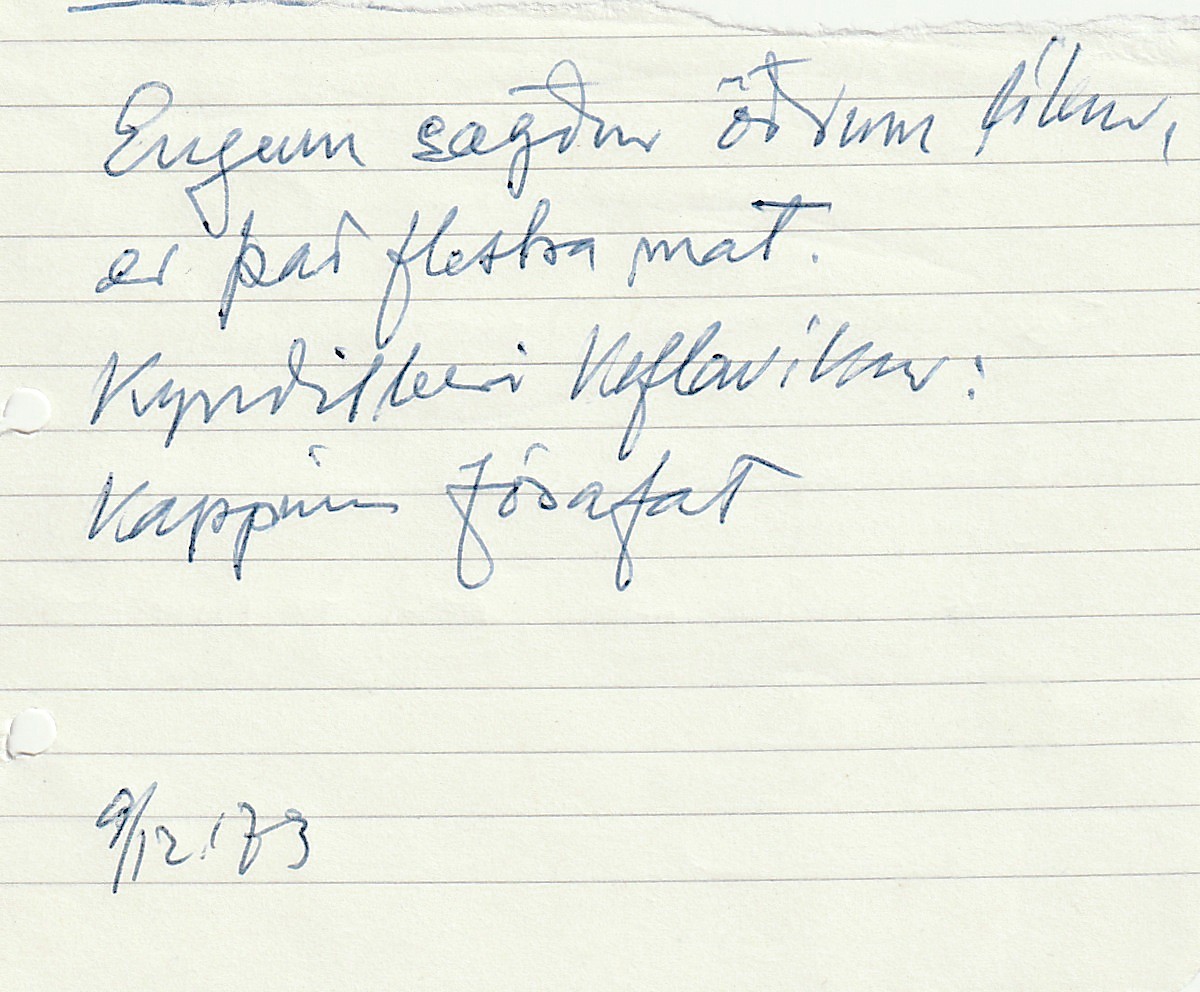 Engum sagður öðrum líkur,
er það flestra mat.
Kyndilberi Keflavíkur:
Kappinn Jósafat
9/12.'73